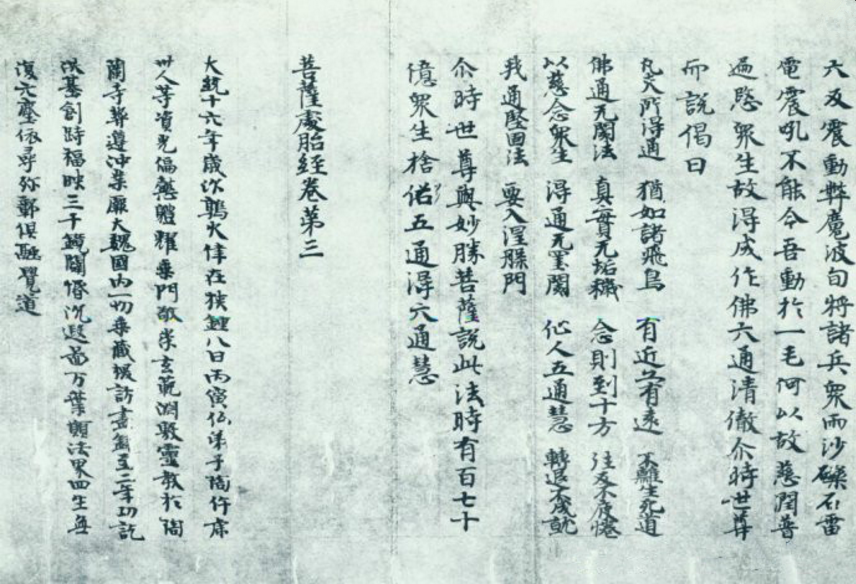 六反震動弊魔波旬將諸兵眾雨沙礫石雷
電震吼不能令吾動於一毛何以故慈潤普
遍愍眾生故得成作佛六通清徹尒時世尊
而說偈曰
凡夫所得通 猶如諸飛鳥 有近亦有遠 不離生死道
佛通无閡法 真實无垢穢 念則到十方 往反不疲惓
以慈念眾生 得通无罣閡 仙人五通慧 轉退不成就
我通堅固法 要入涅槃門
尒時世尊與妙勝菩薩說此法時有百七十
億眾生捨俗五通得六通慧
菩薩處胎經卷第三
大統十六年歲次鶉火律在狹鍾八日丙寅仏弟子陶仵席
卅人等資光偏慧體耀桒門敬崇玄範淵聚靈教於陶
蘭寺遵沖業大魏國內一切藏訪盡至二年功訖
基創時福映三千鏡閻沉遐萬葉願法界四生無
復依尋弥勒俱融覺道